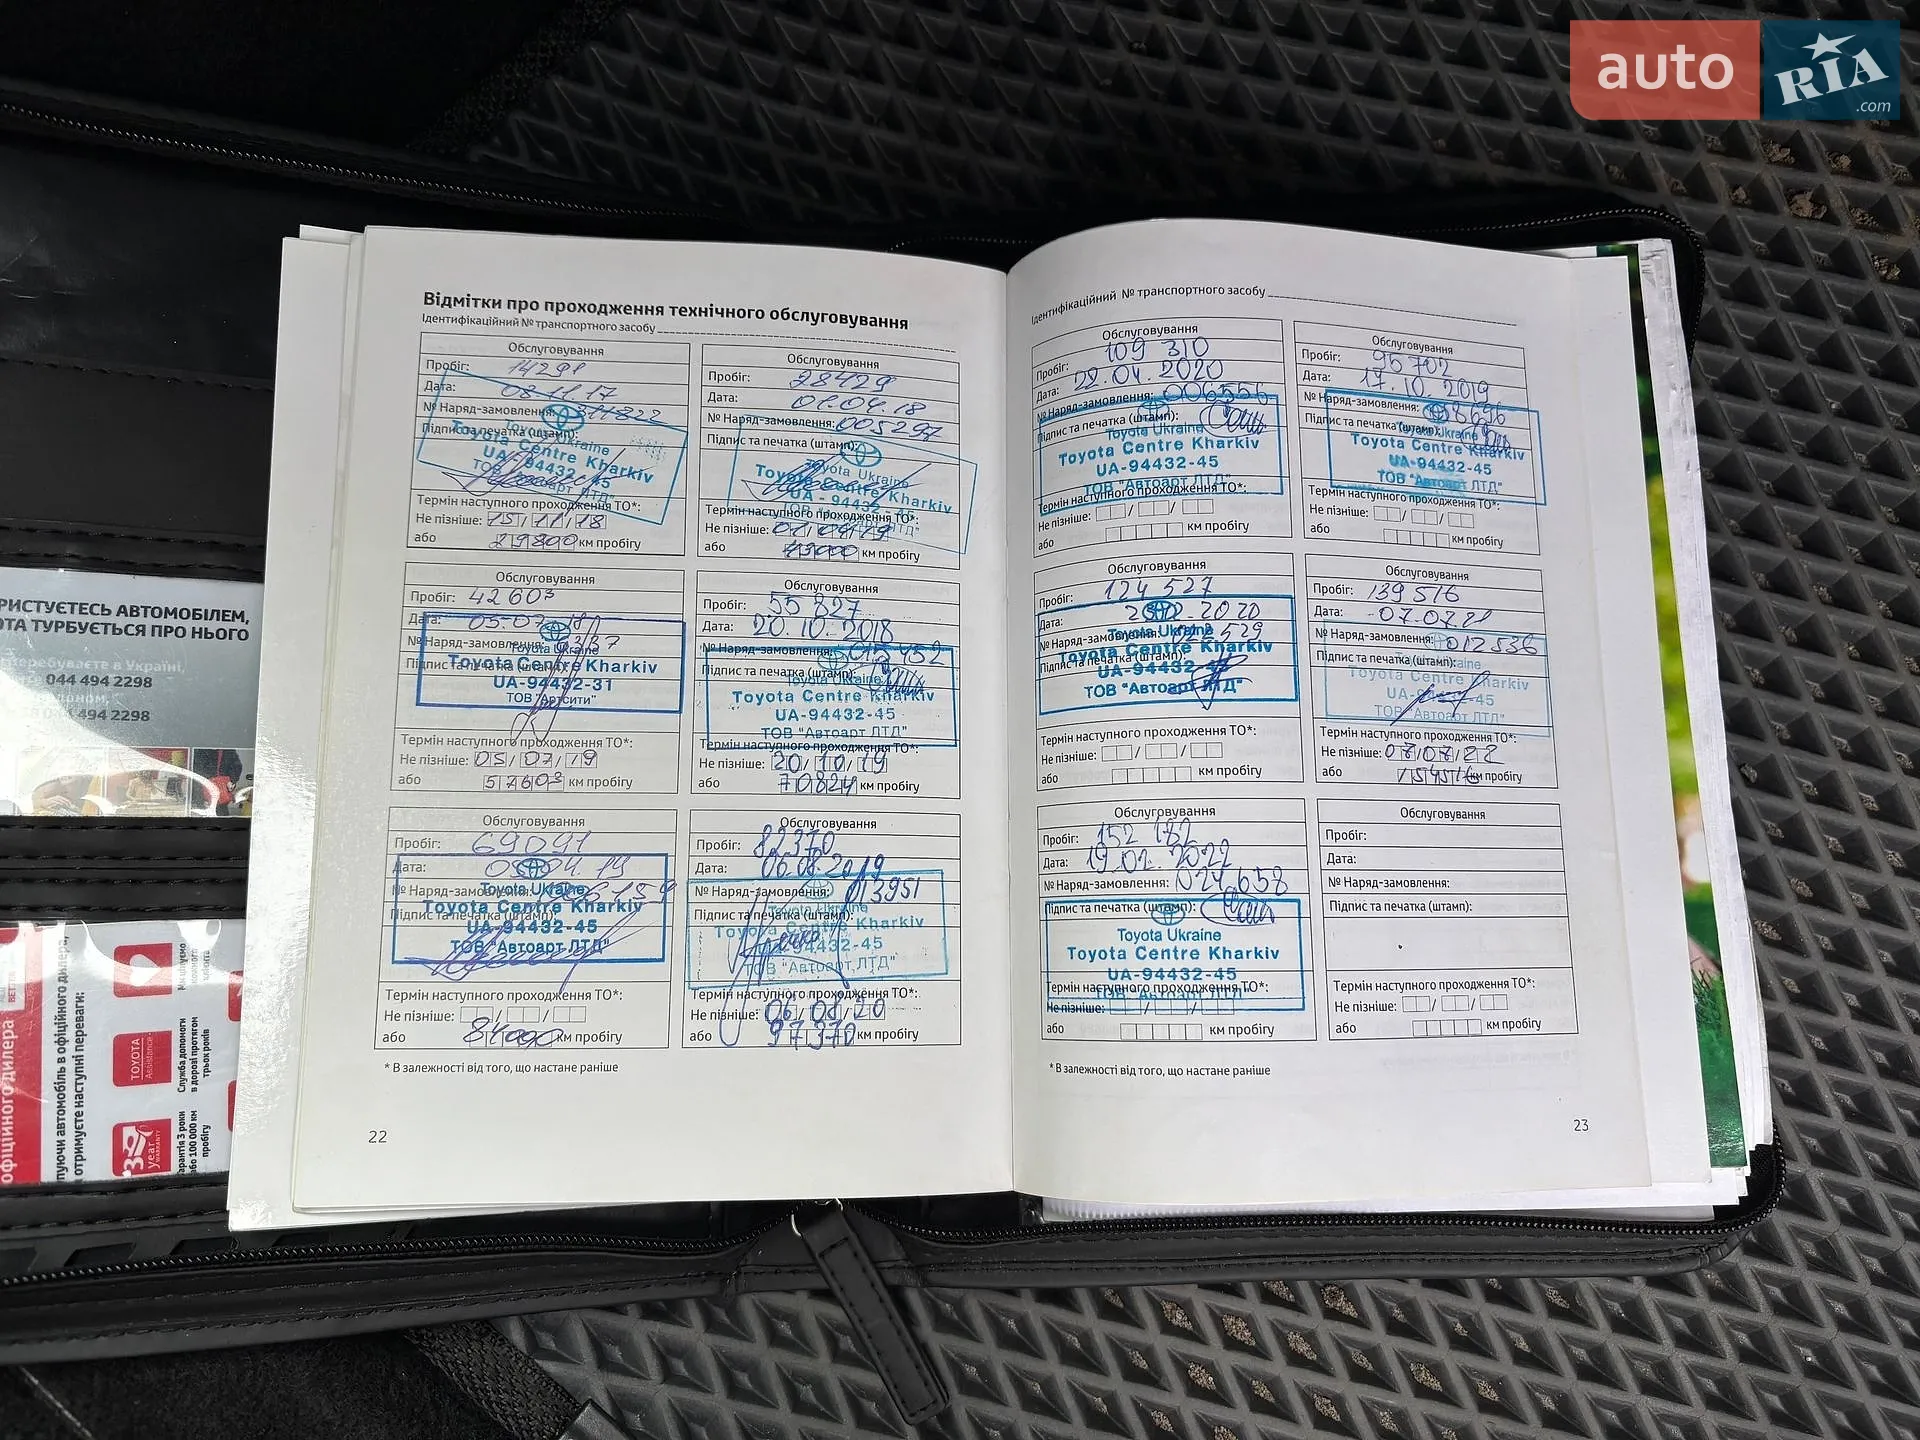 auto RIA.com
Відмітки про проходження технічного обслуговування
Ідентифікаційний № транспортного засобу
Обслуговування
Пробіг: 14291
Дата: 08.11.17
№ Наряд-замовлення: 311822
Підпис та печатка (штамп):
Toyota Ukraine
Toyota Centre Kharkiv
UA-94432-45
ТОВ "Автоарт ЛТД"
Термін наступного проходження ТО*:
Не пізніше: 15/11/18
або 29300 км пробігу
Обслуговування
Пробіг: 28429
Дата: 01.04.18
№ Наряд-замовлення: 005297
Підпис та печатка (штамп):
Toyota Ukraine
Toyota Centre Kharkiv
UA-94432-45
Термін наступного проходження ТО*:
Не пізніше: 01/04/19
або 43000 км пробігу
Обслуговування
Пробіг: 42603
Дата: 05.07.18
№ Наряд-замовлення:
Підпис та печатка (штамп):
Toyota Ukraine
Toyota Centre Kharkiv
UA-94432-31
ТОВ "Артсити"
Термін наступного проходження ТО*:
Не пізніше: 05/07/19
або 57603 км пробігу
Обслуговування
Пробіг: 55 827
Дата: 20.10.2018
№ Наряд-замовлення:
Підпис та печатка (штамп):
Toyota Ukraine
Toyota Centre Kharkiv
UA-94432-45
ТОВ "Автоарт ЛТД"
Термін наступного проходження ТО*:
Не пізніше: 20/10/19
або 70824 км пробігу
Обслуговування
Пробіг: 69091
Дата: 04.19
№ Наряд-замовлення:
Підпис та печатка (штамп):
Toyota Ukraine
Toyota Centre Kharkiv
UA-94432-45
ТОВ "Автоарт ЛТД"
Термін наступного проходження ТО*:
Не пізніше:
або 84000 км пробігу
Обслуговування
Пробіг: 82370
Дата: 06.08.2019
№ Наряд-замовлення: 013951
Підпис та печатка (штамп):
Toyota Ukraine
Toyota Centre Kharkiv
UA-94432-45
ТОВ "Автоарт ЛТД"
Термін наступного проходження ТО*:
Не пізніше: 06/08/20
або 97370 км пробігу
* В залежності від того, що настане раніше
22
Ідентифікаційний № транспортного засобу
Обслуговування
Пробіг: 109 310
Дата: 22.04.2020
№ Наряд-замовлення: 006556
Підпис та печатка (штамп):
Toyota Ukraine
Toyota Centre Kharkiv
UA-94432-45
ТОВ "Автоарт ЛТД"
Термін наступного проходження ТО*:
Не пізніше:
або км пробігу
Обслуговування
Пробіг: 95702
Дата: 17.10.2019
№ Наряд-замовлення:
Підпис та печатка (штамп):
Toyota Ukraine
Toyota Centre Kharkiv
UA-94432-45
ТОВ "Автоарт ЛТД"
Термін наступного проходження ТО*:
Не пізніше:
або км пробігу
Обслуговування
Пробіг: 124 527
Дата: 2020
№ Наряд-замовлення:
Підпис та печатка (штамп):
Toyota Ukraine
Toyota Centre Kharkiv
UA-94432-45
ТОВ "Автоарт ЛТД"
Термін наступного проходження ТО*:
Не пізніше:
або км пробігу
Обслуговування
Пробіг: 139516
Дата: 07.07.21
№ Наряд-замовлення: 012536
Підпис та печатка (штамп):
Toyota Centre Kharkiv
UA-94432-45
ТОВ "Автоарт ЛТД"
Термін наступного проходження ТО*:
Не пізніше: 07/07/22
або 154516 км пробігу
Обслуговування
Пробіг: 152 182
Дата: 19.02.2022
№ Наряд-замовлення: 024658
Підпис та печатка (штамп):
Toyota Ukraine
Toyota Centre Kharkiv
UA-94432-45
ТОВ "Автоарт ЛТД"
Термін наступного проходження ТО*:
Не пізніше:
або км пробігу
Обслуговування
Пробіг:
Дата:
№ Наряд-замовлення:
Підпис та печатка (штамп):
Термін наступного проходження ТО*:
Не пізніше:
або км пробігу
* В залежності від того, що настане раніше
23
РИСТУЄТЕСЬ АВТОМОБІЛЕМ,
ОТА ТУРБУЄТЬСЯ ПРО НЬОГО
перебуваєте в Україні,
044 494 2298
044 494 2298
офіційного дилера
пуючи автомобіль в офіційного дилера,
отримуєте наступні переваги:
TOYOTA
Assistance
Служба допомоги
в дорозі протягом
трьох років
3 year
WARRANTY
арантія 3 роки
або 100 000 км
пробігу